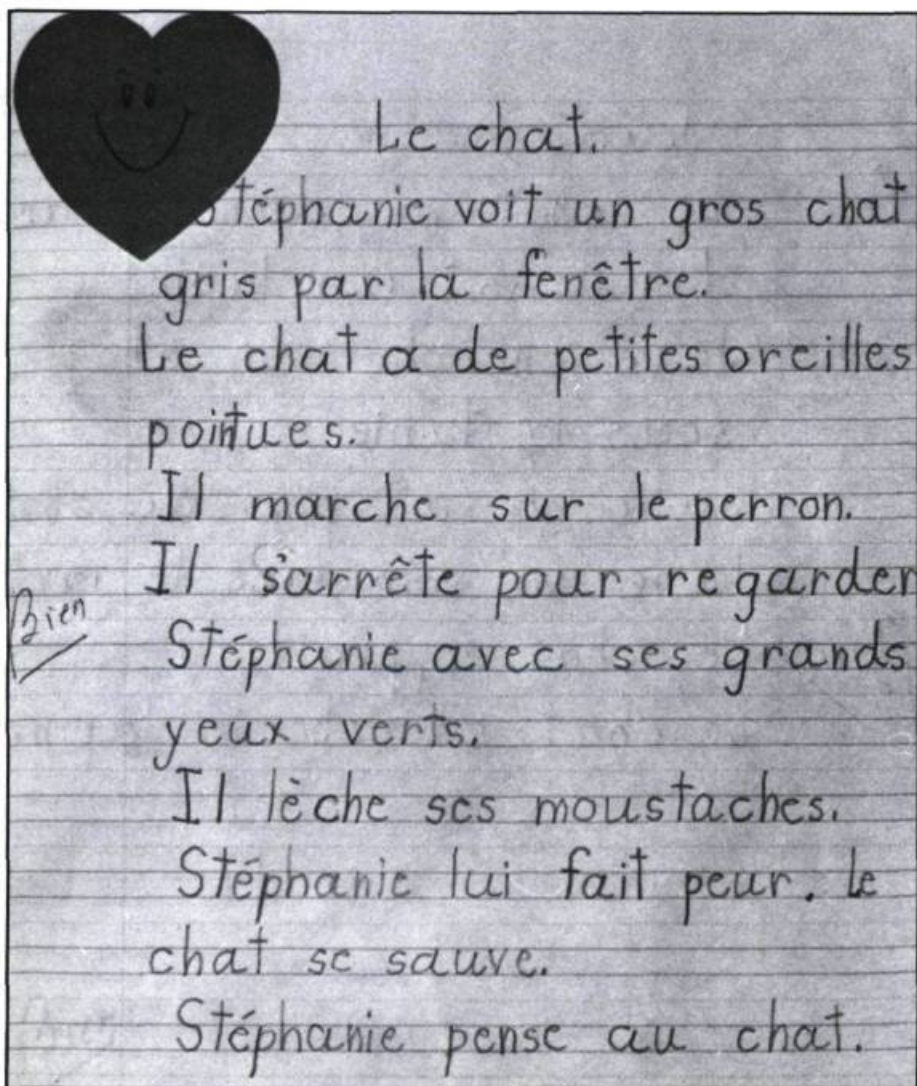 Le chat.
Stéphanie voit un gros chat
gris par la fenêtre.
Le chat a de petites oreilles
pointues.
Il marche sur le perron.
Il s'arrête pour regarder
Bien
Stéphanie avec ses grands
yeux verts.
Il lèche ses moustaches.
Stéphanie lui fait peur. Le
chat se sauve.
Stéphanie pense au chat.